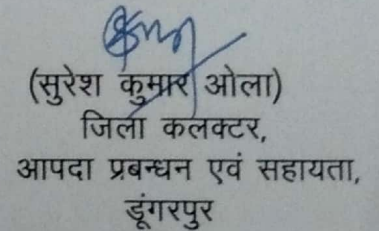 (सुरेश कुमार ओला)
जिला कलक्टर,
आपदा प्रबन्धन एवं सहायता,
डूंगरपुर